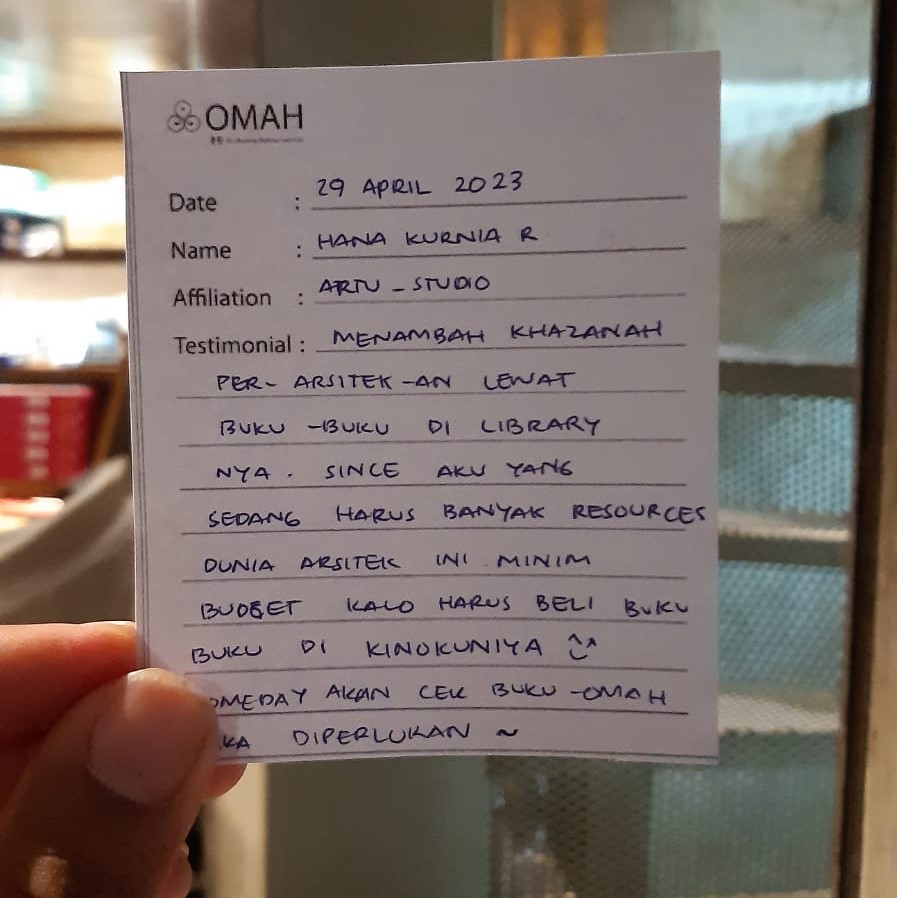 OMAH
Date : 29 APRIL 2023
Name : HANA KURNIA R
Affiliation : ARTU - STUDIO
Testimonial : MENAMBAH KHAZANAH
PER- ARSITEK -AN LEWAT
BUKU -BUKU DI LIBRARY
NYA. SINCE AKU YANG
SEDANG HARUS BANYAK RESOURCES
DUNIA ARSITEK INI MINIM
BUDGET KALO HARUS BELI BUKU
BUKU DI KINOKUNIYA
OMEDAY AKAN CEK BUKU -OMAH
KA DIPERLUKAN ~